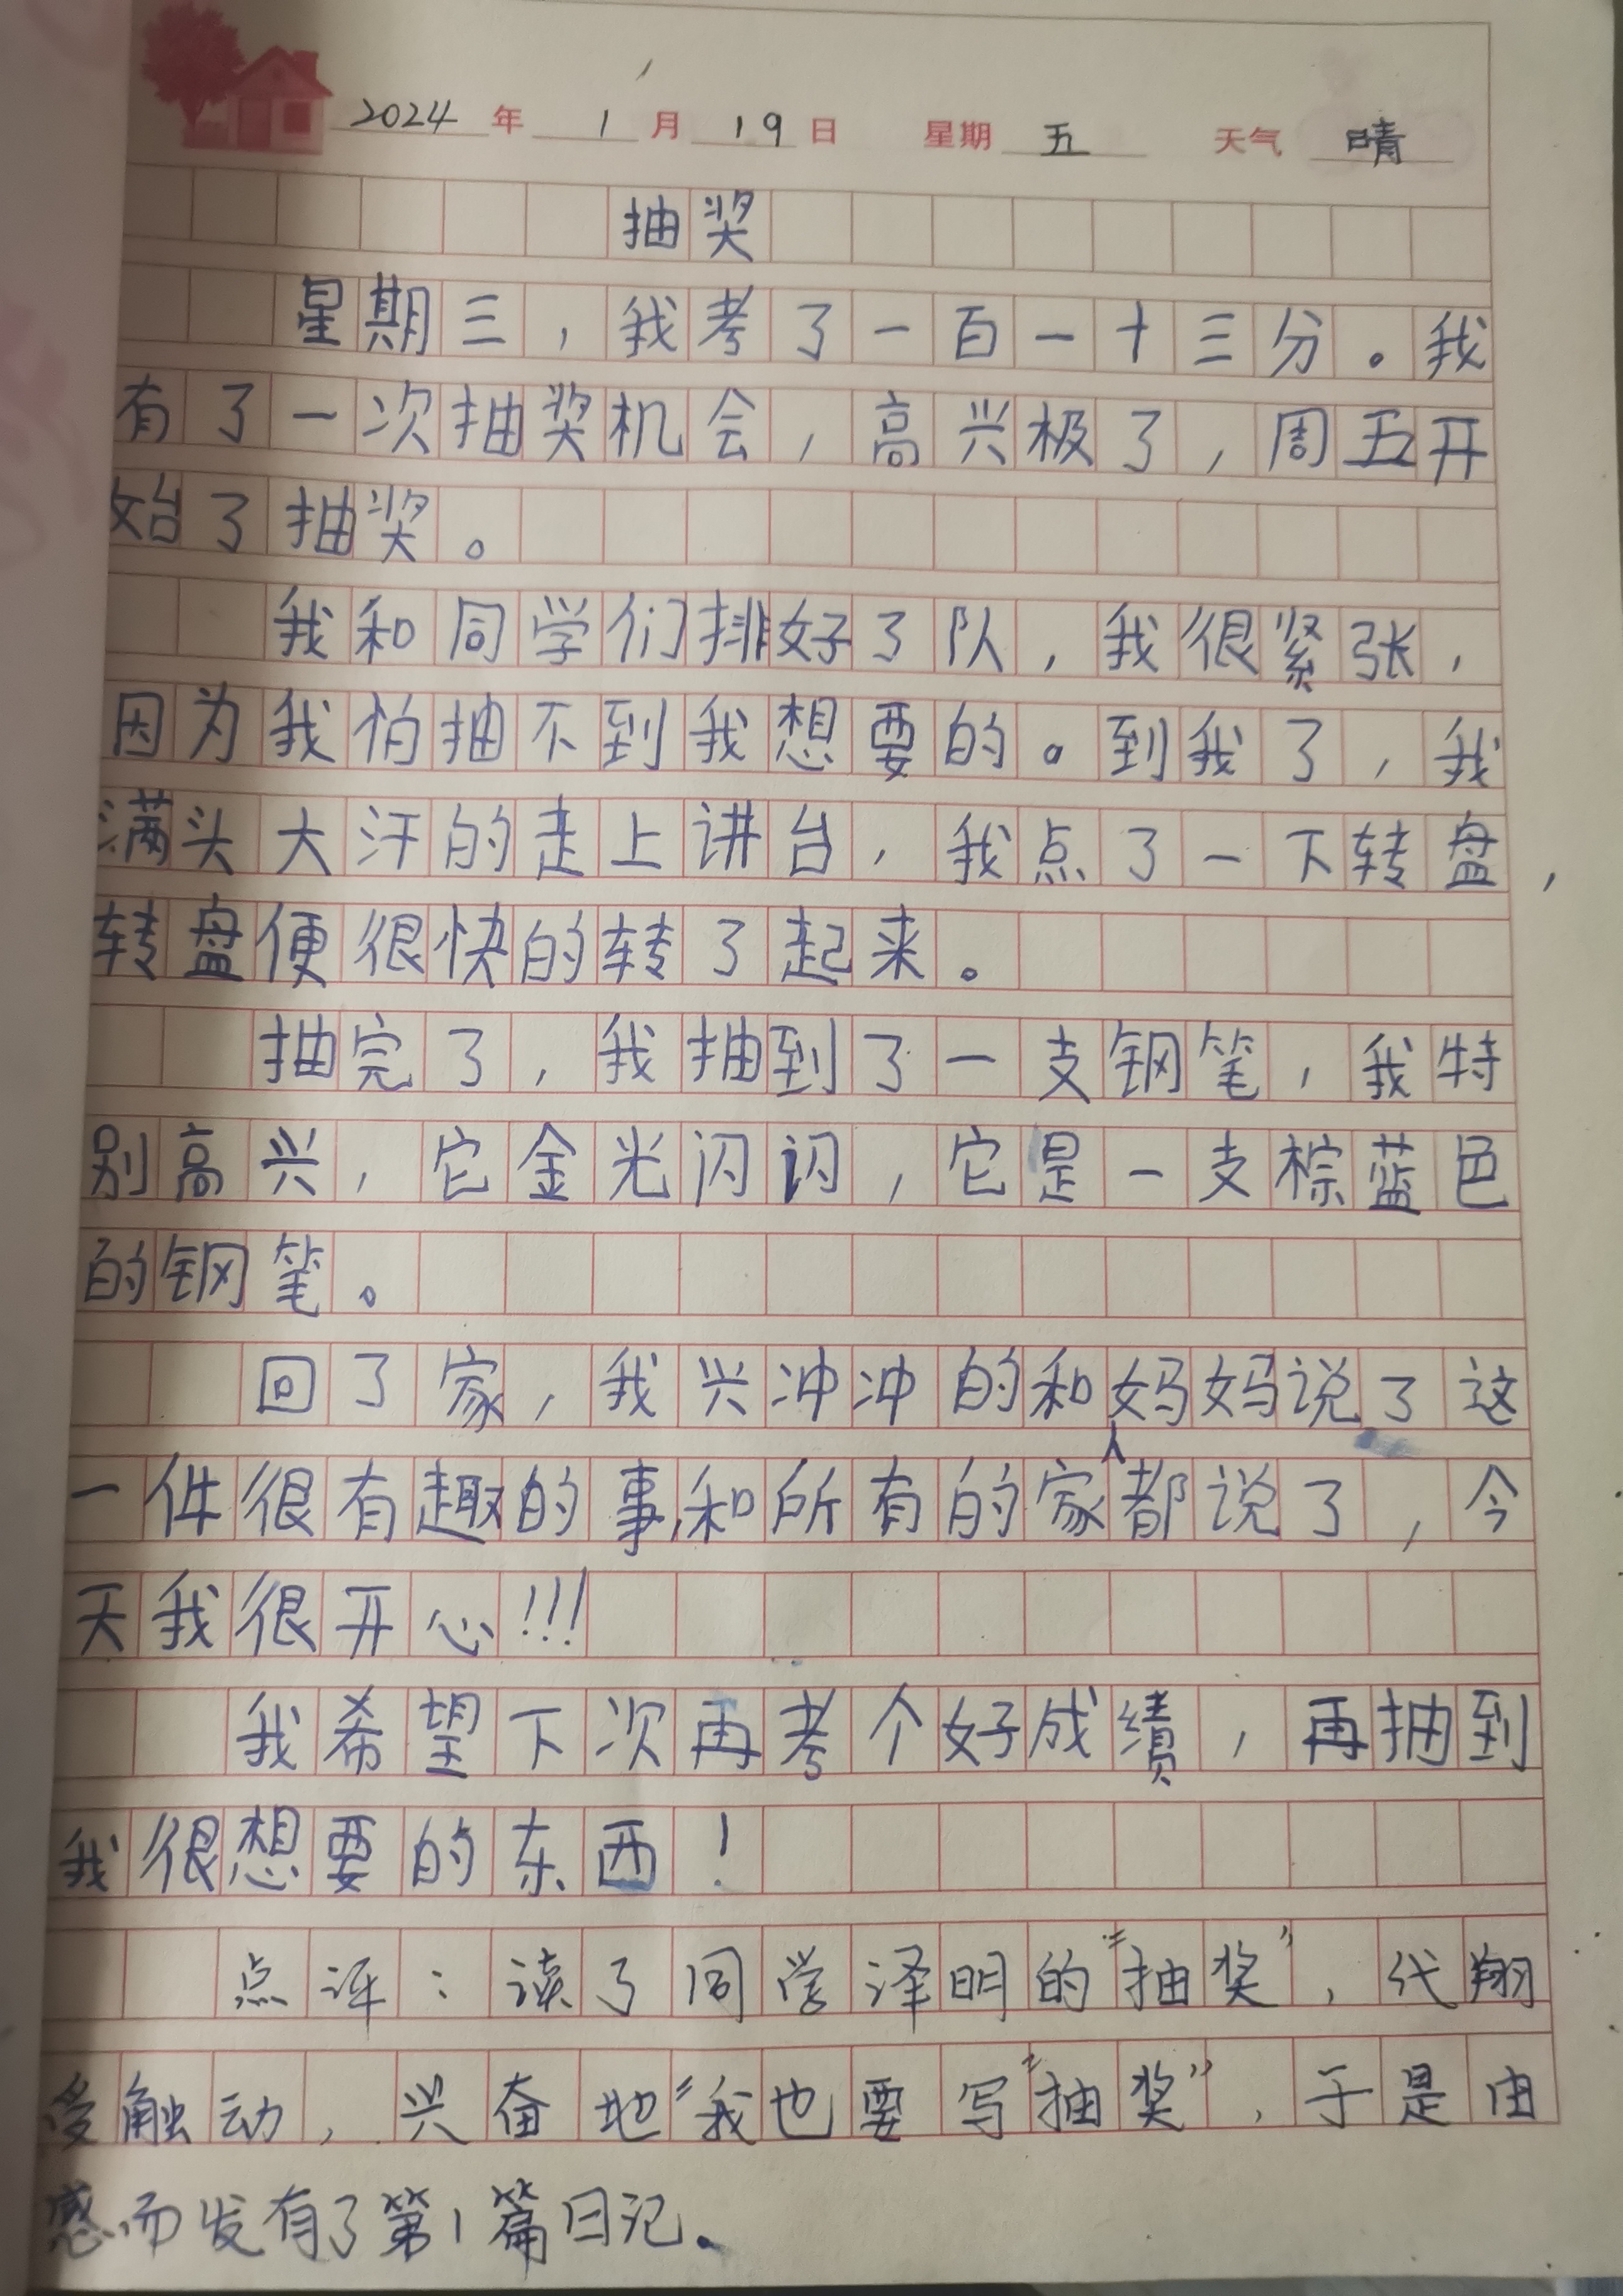 2024年1月19日 星期五 天气晴
抽奖
星期三，我考了一百一十三分。我
有了一次抽奖机会，高兴极了，周五开
始了抽奖。
我和同学们排好了队，我很紧张，
因为我怕抽不到我想要的。到我了，我
满头大汗的走上讲台，我点了一下转盘，
转盘便很快的转了起来。
抽完了，我抽到了一支钢笔，我特
别高兴，它金光闪闪，它是一支棕蓝色
的钢笔。
回了家，我兴冲冲的和妈妈说了这
一件很有趣的事，和所有的家人都说了，今
天我很开心!!!
我希望下次再考个好成绩，再抽到
我很想要的东西！
点评：读了同学泽明的“抽奖”，代翔
受触动，兴奋地“我也要写“抽奖”，于是由
感而发有了第1篇日记。